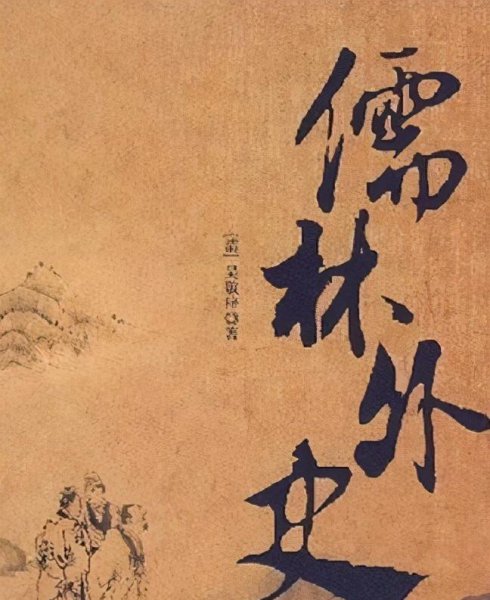 儒林外史
[清]吴敬梓◎著